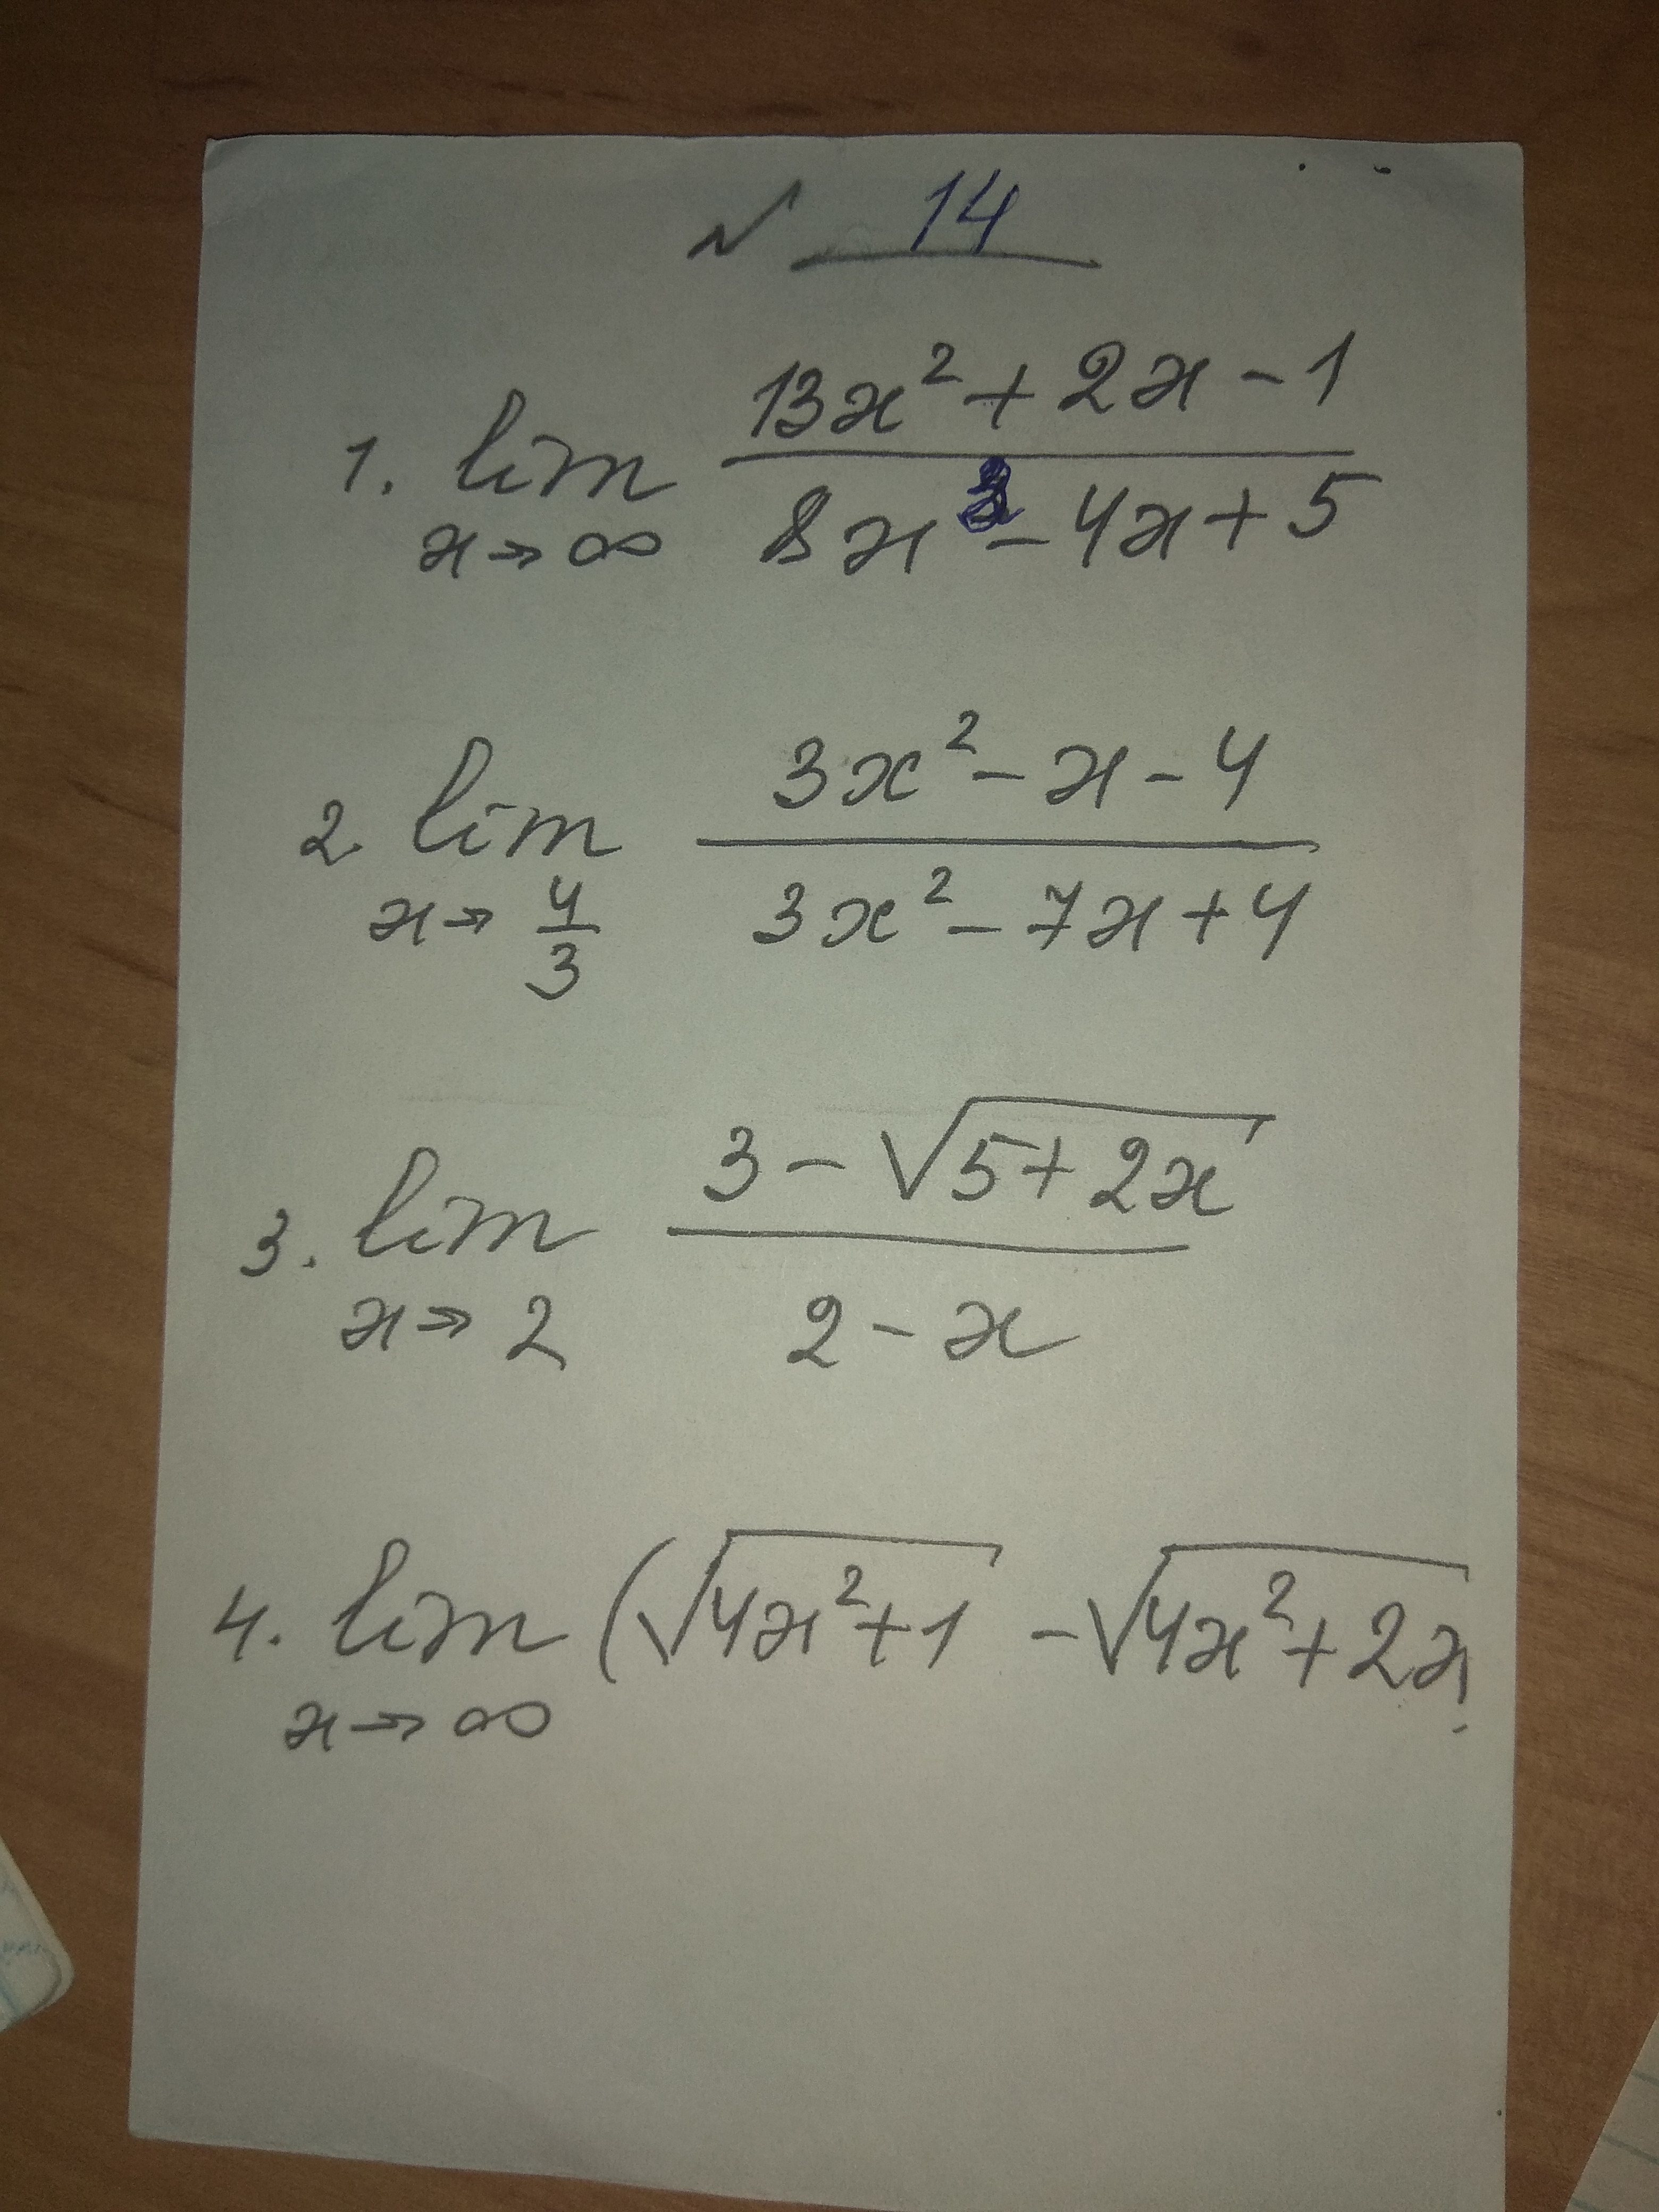 № 14
1. lim x→∞ (13x² + 2x - 1) / (8x³ - 4x + 5)
2. lim x→4/3 (3x² - x - 4) / (3x² - 7x + 4)
3. lim x→2 (3 - √(5 + 2x)) / (2 - x)
4. lim x→∞ (√(4x² + 1) - √(4x² + 2x)